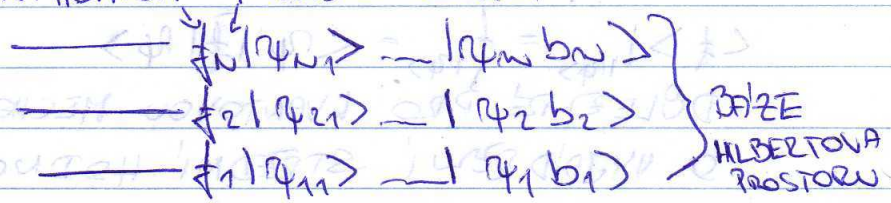 f_N |ψ_{N1}> — |ψ_{N} b_N>
f_2 |ψ_{21}> — |ψ_2 b_2>
f_1 |ψ_{11}> — |ψ_1 b_1>
BÁZE
HILBERTOVA
PROSTORU